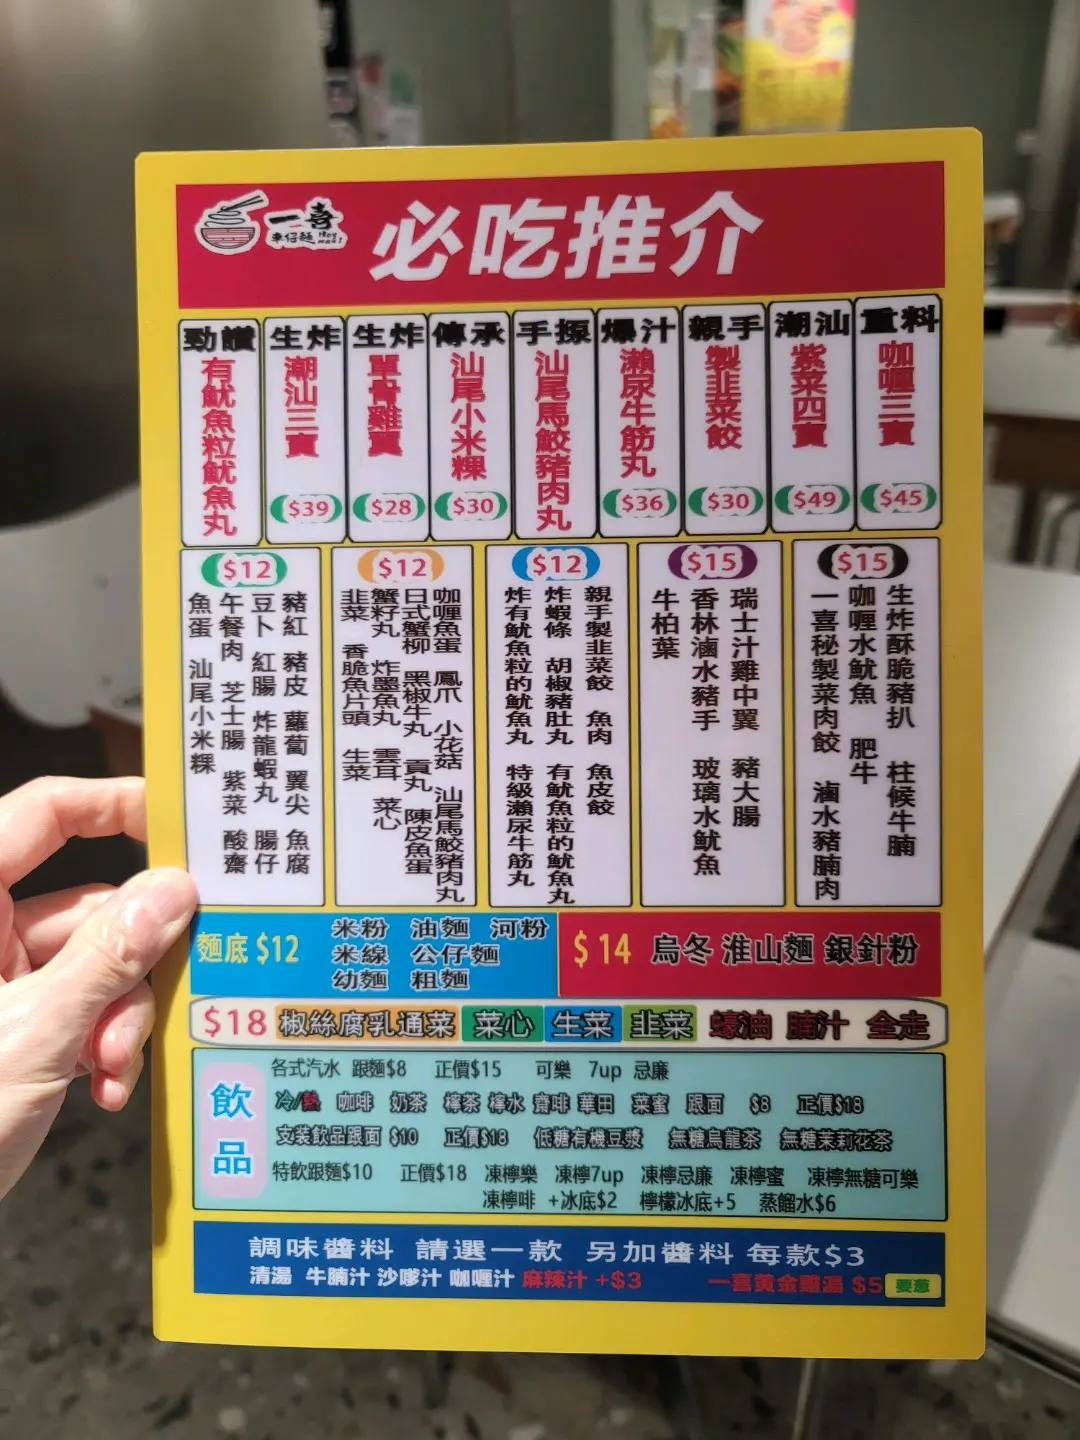 一喜
車仔麵
必吃推介
勁讚
有魷魚粒魷魚丸
生炸
潮汕三寶
$39
生炸
單骨雞翼
$28
傳承
汕尾小米粿
$30
手捼
汕尾馬鮫豬肉丸
爆汁
瀨尿牛筋丸
$36
親手
製韮菜餃
$30
潮汕
紫菜四寶
$49
重料
咖喱三寶
$45
$12
豬紅 豬皮 蘿蔔 翼尖 魚腐
豆卜 紅腸 炸龍蝦丸 腸仔
午餐肉 芝士腸 紫菜 酸齋
魚蛋 汕尾小米粿
$12
咖喱魚蛋 鳳爪 小花菇 汕尾馬鮫豬肉丸
日式蟹柳 黑椒牛丸 貢丸 陳皮魚蛋
蟹籽丸 炸墨魚丸 雲耳 菜心
韭菜 香脆魚片頭 生菜
$12
親手製韮菜餃 魚肉 魚皮餃
炸蝦條 胡椒豬肚丸 有魷魚粒的魷魚丸
炸有魷魚粒的魷魚丸 特級瀨尿牛筋丸
$15
瑞士汁雞中翼 豬大腸
香林滷水豬手 玻璃水魷魚
牛柏葉
$15
生炸酥脆豬扒 柱候牛腩
咖喱水魷魚 肥牛
一喜秘製菜肉餃 滷水豬腩肉
麵底 $12
米粉 油麵 河粉
米線 公仔麵
幼麵 粗麵
$14 烏冬 淮山麵 銀針粉
$18 椒絲腐乳通菜 菜心 生菜 韭菜 蠔油 腩汁 全走
飲品
各式汽水 跟麵$8 正價$15 可樂 7up 忌廉
冷/熱 咖啡 奶茶 檸茶 檸水 齋啡 華田 菜蜜 跟面 $8 正價$18
支裝飲品跟面 $10 正價$18 低糖有機豆漿 無糖烏龍茶 無糖茉莉花茶
特飲跟麵$10 正價$18 凍檸樂 凍檸7up 凍檸忌廉 凍檸蜜 凍檸無糖可樂
凍檸啡 +冰底$2 檸檬冰底+5 蒸餾水$6
調味醬料 請選一款 另加醬料 每款$3
清湯 牛腩汁 沙嗲汁 咖喱汁 麻辣汁 +$3 一喜黃金雞湯 $5 要蔥